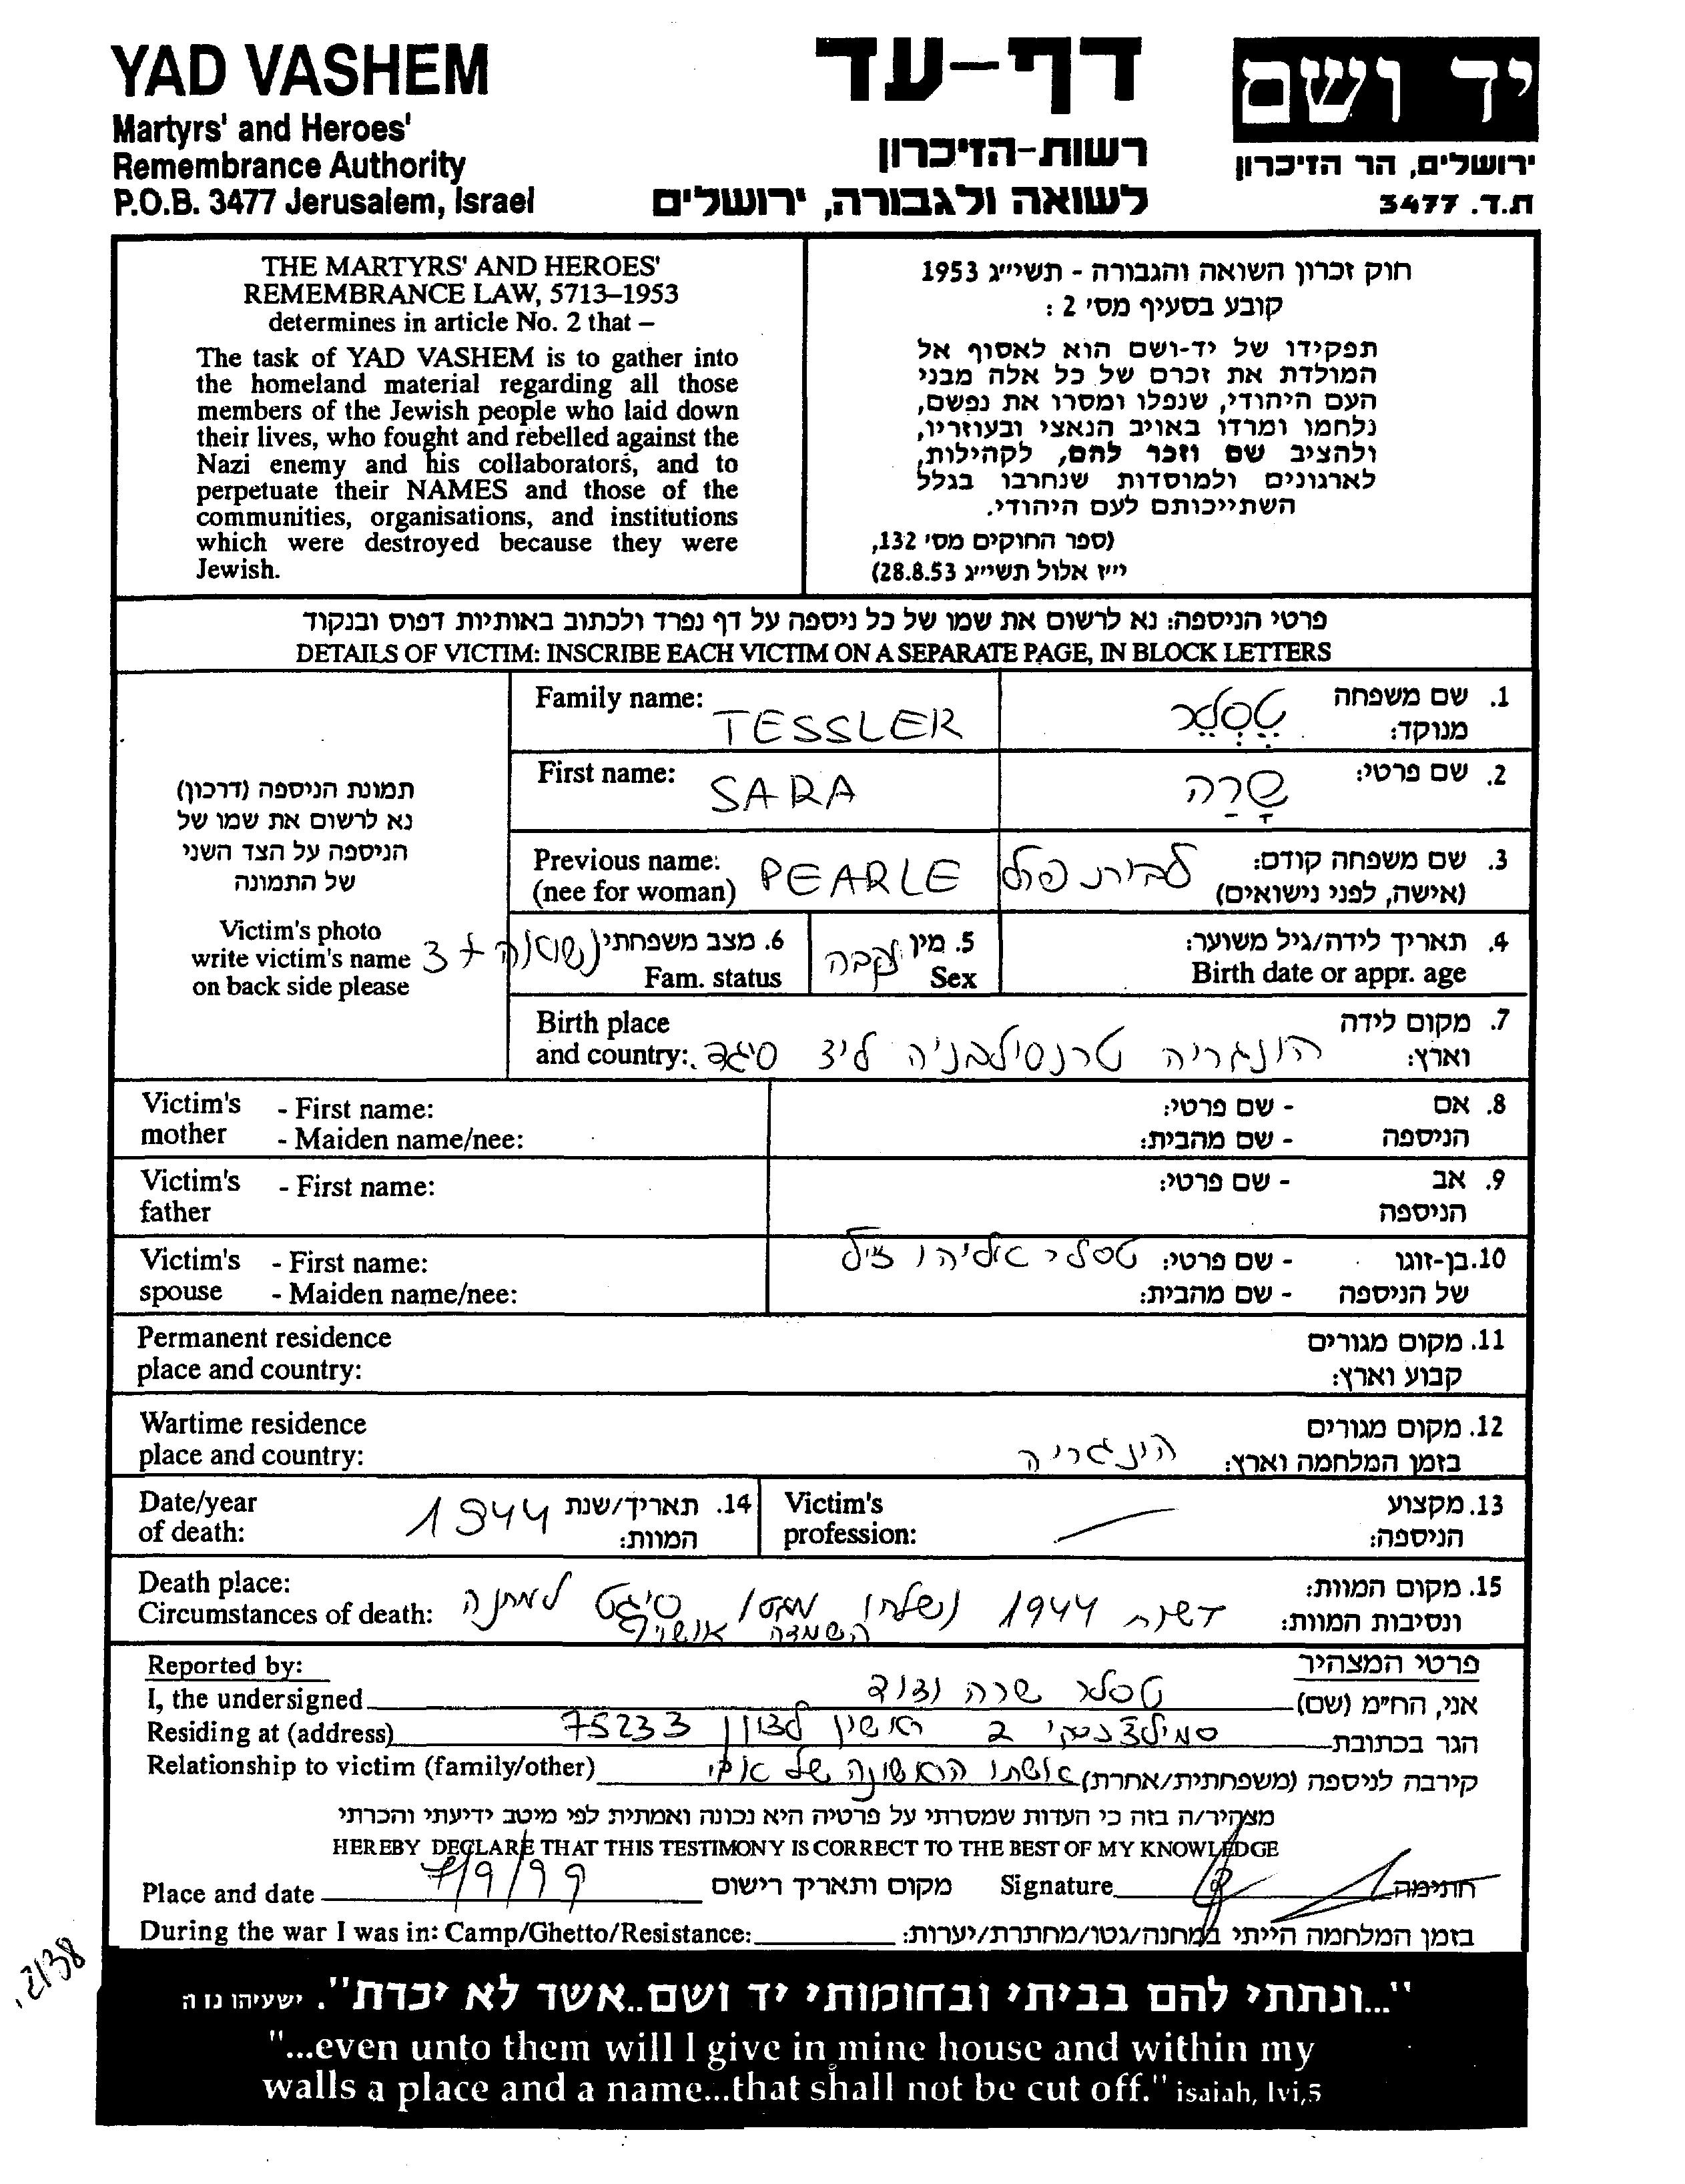 YAD VASHEM
Martyrs' and Heroes'
Remembrance Authority
P.O.B. 3477 Jerusalem, Israel
דף-עד
רשות-הזיכרון
לשואה ולגבורה, ירושלים
יד ושם
ירושלים, הר הזיכרון
ת.ד. 3477
THE MARTYRS' AND HEROES'
REMEMBRANCE LAW, 5713–1953
determines in article No. 2 that –
The task of YAD VASHEM is to gather into
the homeland material regarding all those
members of the Jewish people who laid down
their lives, who fought and rebelled against the
Nazi enemy and his collaborators, and to
perpetuate their NAMES and those of the
communities, organisations, and institutions
which were destroyed because they were
Jewish.
חוק זכרון השואה והגבורה - תשי״ג 1953
קובע בסעיף מס' 2 :
תפקידו של יד-ושם הוא לאסוף אל
המולדת את זכרם של כל אלה מבני
העם היהודי, שנפלו ומסרו את נפשם,
נלחמו ומרדו באויב הנאצי ובעוזריו,
ולהציב שם וזכר להם, לקהילות,
לארגונים ולמוסדות שנחרבו בגלל
השתייכותם לעם היהודי.
(ספר החוקים מס' 132,
י״ז אלול תשי״ג 28.8.53)
פרטי הניספה: נא לרשום את שמו של כל ניספה על דף נפרד ולכתוב באותיות דפוס ובנקוד
DETAILS OF VICTIM: INSCRIBE EACH VICTIM ON A SEPARATE PAGE, IN BLOCK LETTERS
תמונת הניספה (דרכון)
נא לרשום את שמו של
הניספה על הצד השני
של התמונה
Victim's photo
write victim's name
on back side please
Family name: TESSLER
1. שם משפחה מנוקד: טֶסְלֶר
First name: SARA
2. שם פרטי: שָׂרַה
Previous name: (nee for woman) PEARLE
3. שם משפחה קודם: (אישה, לפני נישואים) לבית פרל
4. תאריך לידה/גיל משוער:
Birth date or appr. age
5. מין נקבה
Sex
6. מצב משפחתי נשואה + 3
Fam. status
Birth place
and country:
7. מקום לידה
וארץ: הונגריה טרנסילבניה ליד סיגט
Victim's mother - First name:
- Maiden name/nee:
8. אם הניספה - שם פרטי:
- שם מהבית:
Victim's father - First name:
9. אב הניספה - שם פרטי:
Victim's spouse - First name:
- Maiden name/nee:
10. בן-זוגו של הניספה - שם פרטי: טסלר אליהו ז״ל
- שם מהבית:
Permanent residence
place and country:
11. מקום מגורים
קבוע וארץ:
Wartime residence
place and country:
12. מקום מגורים
בזמן המלחמה וארץ: הונגריה
Date/year
of death:
14. תאריך/שנת
המוות: 1944
Victim's
profession: —
13. מקצוע
הניספה:
Death place:
Circumstances of death:
15. מקום המוות:
ונסיבות המוות: 1944 נשלחו מגטו סיגט למחנה
השמדה אושויץ
Reported by:
פרטי המצהיר
I, the undersigned
אני, הח״מ (שם) טסלר שרה ודוד
Residing at (address)
הגר בכתובת 2 ראשון לציון 75233
Relationship to victim (family/other)
קירבה לניספה (משפחתית/אחרת) אשתו הראשונה של אבי
מצהיר/ה בזה כי העדות שמסרתי על פרטיה היא נכונה ואמתית לפי מיטב ידיעתי והכרתי
HEREBY DECLARE THAT THIS TESTIMONY IS CORRECT TO THE BEST OF MY KNOWLEDGE
Place and date 7/9/99 מקום ותאריך רישום Signature חתימה
During the war I was in: Camp/Ghetto/Resistance: בזמן המלחמה הייתי במחנה/גטו/מחתרת/יערות:
"...ונתתי להם בביתי ובחומותי יד ושם..אשר לא יכרת". ישעיהו נו ה
"...even unto them will I give in mine house and within my
walls a place and a name...that shall not be cut off." isaiah, lvi,5